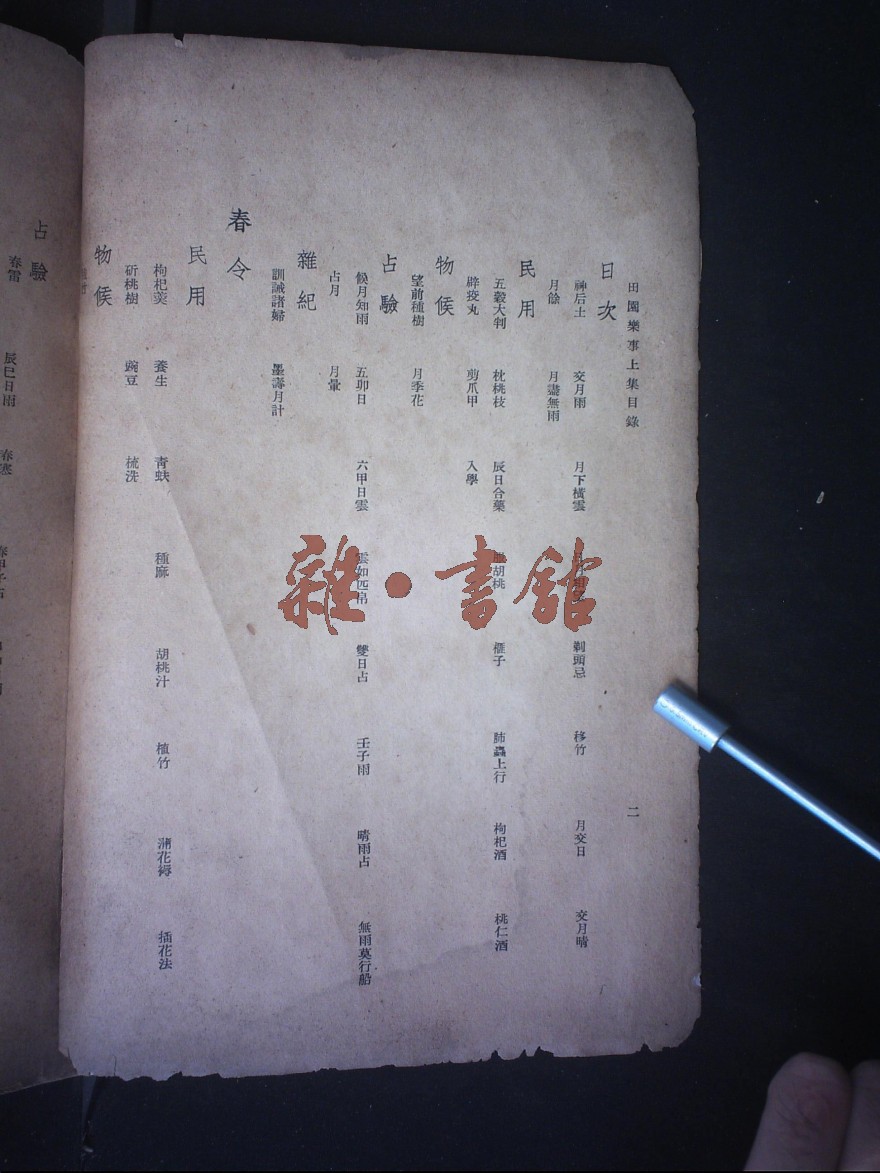 田園樂事上集目錄 二
日次
神后土 交月雨 月下橫雲 剃頭忌 移竹 月交日 交月晴
月餘 月盡無雨
民用
五穀大判 枕桃枝 辰日合藥 服胡桃 榧子 肺蟲上行 枸杞酒 桃仁酒
辟疫丸 剪爪甲 入學
物候
望前種樹 月季花
占驗
候月知雨 五卯日 六甲日雲 雲如匹帛 雙日占 壬子雨 晴雨占 無雨莫行船
占月 月暈
雜紀
訓誡諸婦 墨壽月計
春令
民用
枸杞羹 養生 青蚨 種麻 胡桃汁 植竹 蒲花褥 插花法
斫桃樹 豌豆 梳洗
物候
占驗
春雷 辰巳日雨 春寒
雜·書館